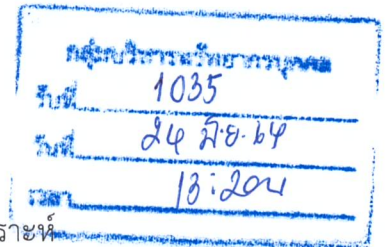 กลุ่มบริหารทรัพยากรบุคคล
รับที่ 1035
วันที่ 24 มิ.ย. 64
เวลา 13:20น
ราะห์